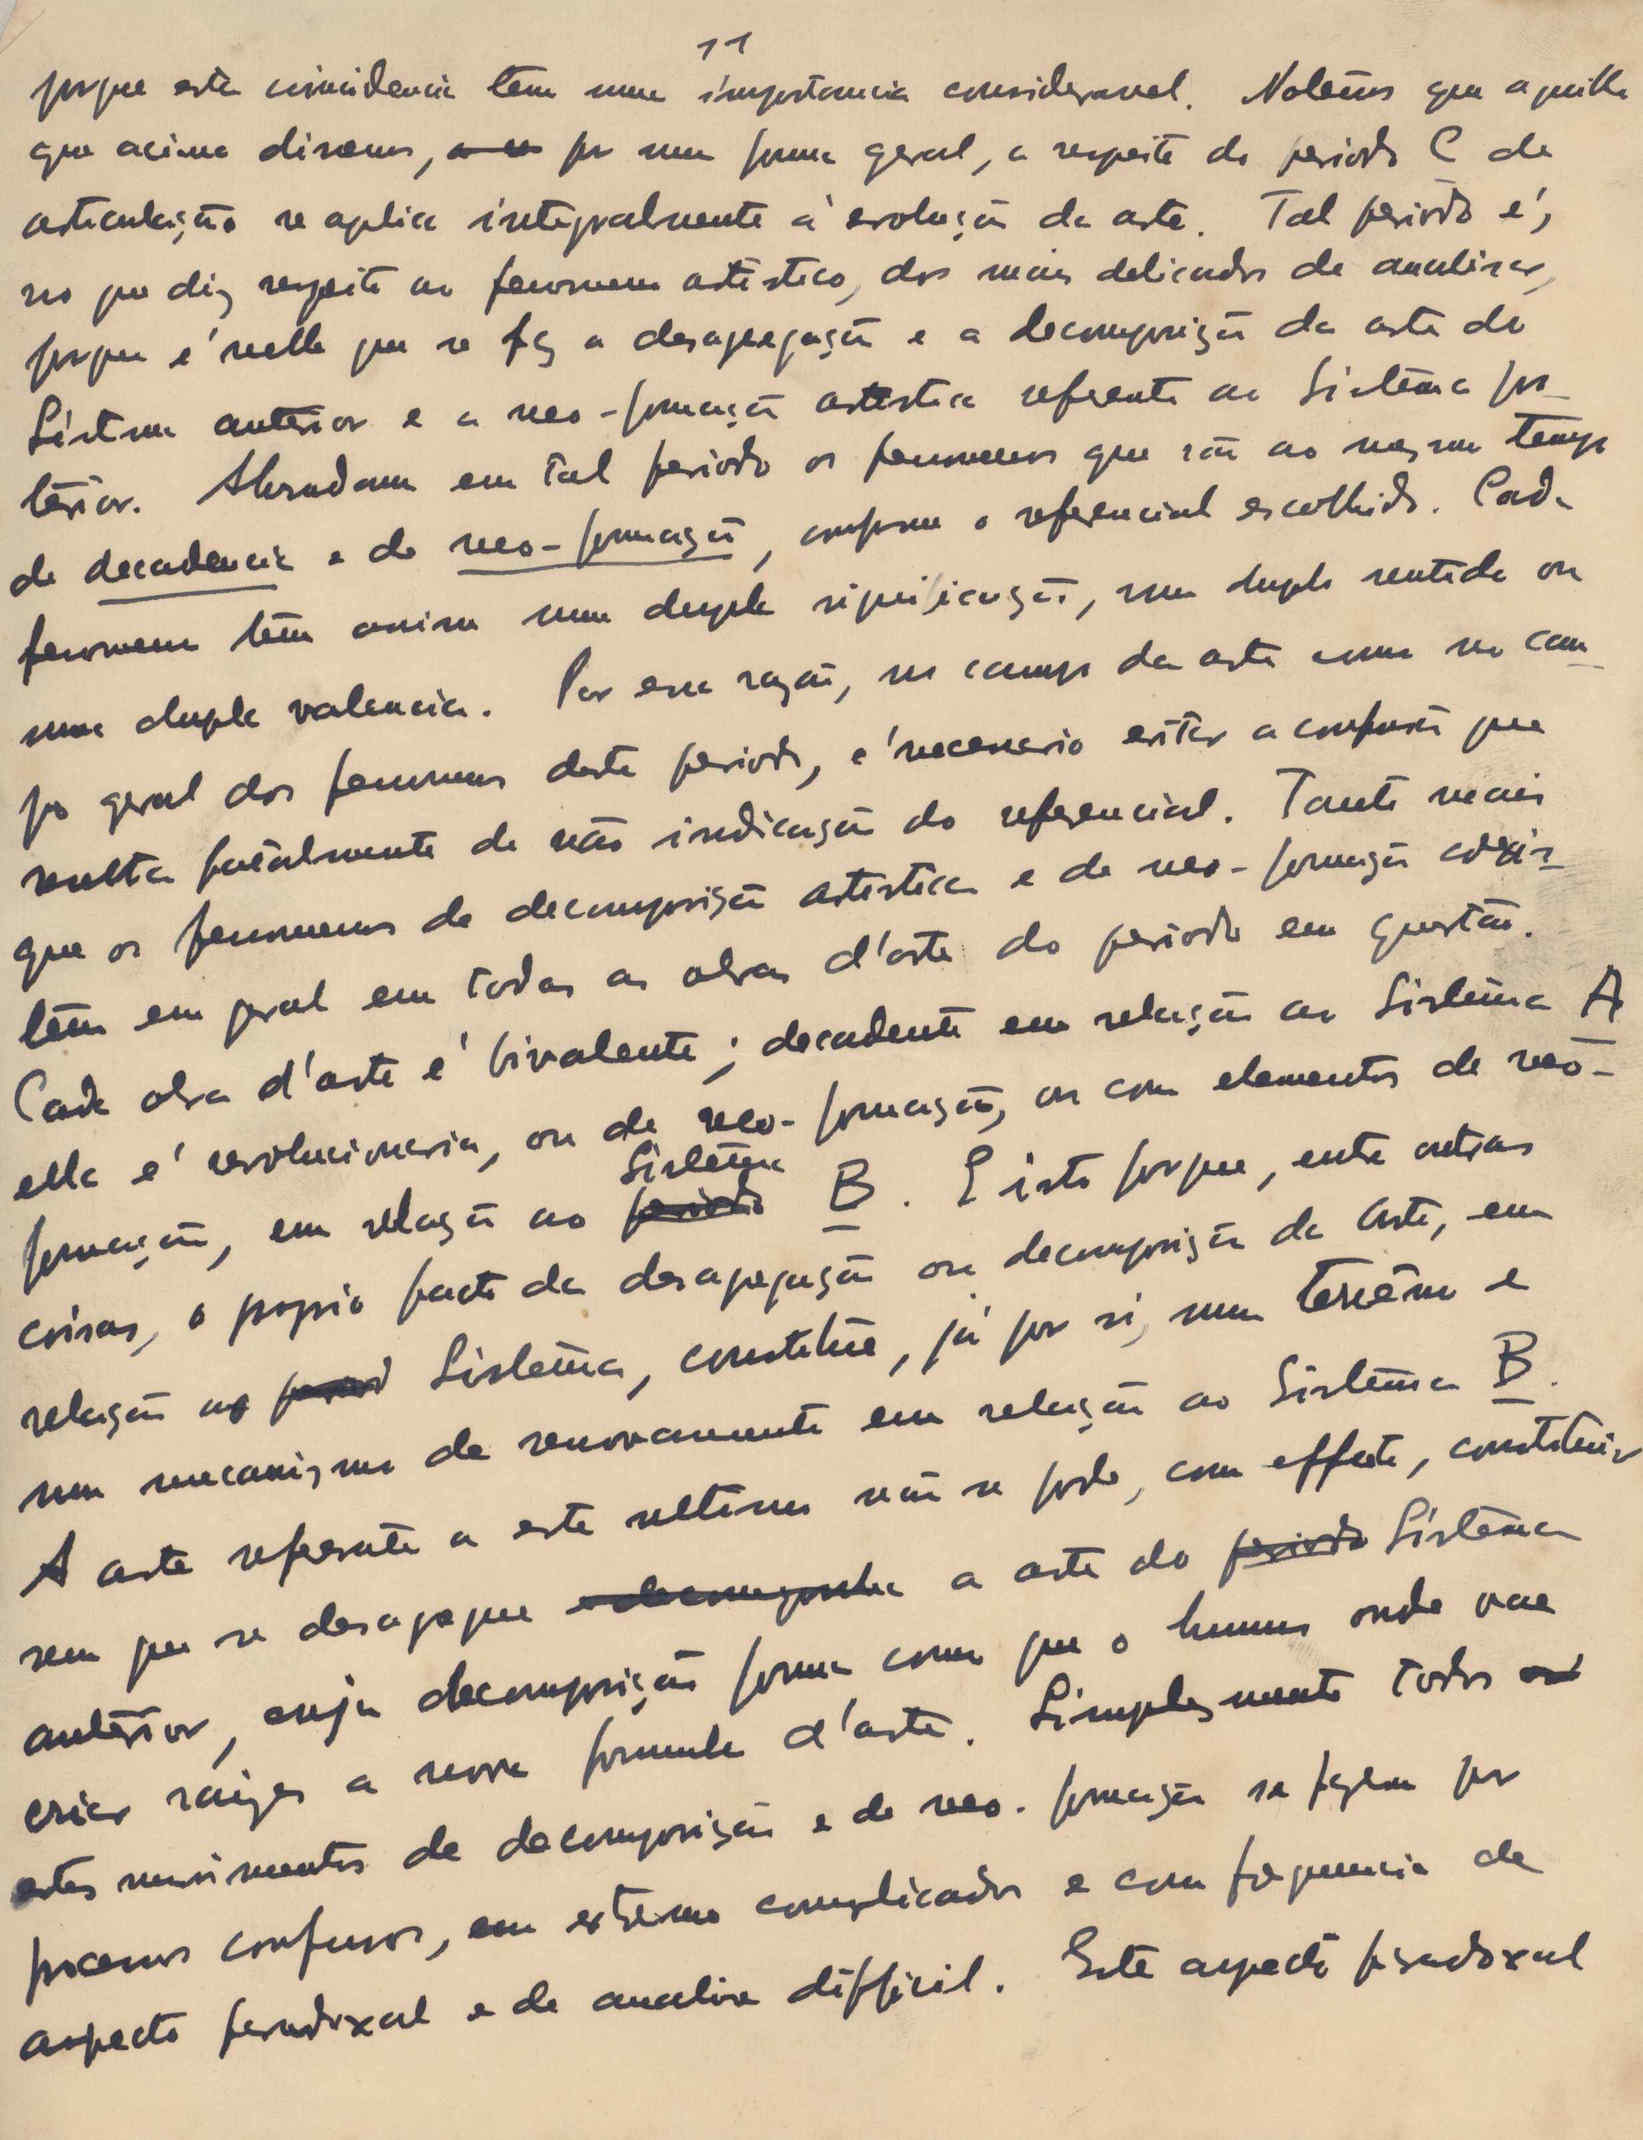 11
porque esta coincidencia tem uma importancia consideravel. Notemos que aquillo
que acima dissemos, por uma forma geral, a respeito do periodo C de
articulação se aplica integralmente à evolução da arte. Tal periodo é,
no que diz respeito ao fenomeno artistico, dos mais delicados de analisar,
porque é nelle que se faz a desagregação e a decomposição da arte do
Sistema anterior e a neo-formação artistica referente ao Sistema pos-
terior. Abundam em tal periodo os fenomenos que são ao mesmo tempo
de decadencia e de neo-formação, conforme o referencial escolhido. Cada
fenomeno tem assim uma dupla significação, um duplo sentido ou
uma dupla valencia. Por essa razão, no campo da arte como no cam-
po geral dos fenomenos deste periodo, é necessario evitar a confusão que
resulta fatalmente da não indicação do referencial. Tanto mais
que os fenomenos de decomposição artistica e de neo-formação coexis-
tem em geral em todas as obras d'arte do periodo em questão.
Cada obra d'arte é bivalente; decadente em relação ao Sistema A
ella é revolucionaria, ou de neo-formação, ou com elementos de neo-
formação, em relação ao periodo Sistema B. E isto porque, entre outras
coisas, o proprio facto da desagregação ou decomposição da Arte, em
relação ao Sistema, constitue, já por si, um terreno e
um mecanismo de renovamento em relação ao Sistema B.
A arte referente a este ultimo não se pode, com effeito, constituir
sem que se desagregue e decomponha a arte do periodo Sistema
anterior, cuja decomposição forma como que o humus onde vae
criar raizes a nova formula d'arte. Simplesmente todos
estes movimentos de decomposição e de neo-formação se fazem por
processos confusos, em extremo complicados e com frequencia de
aspecto paradoxal e de analise difficil. Este aspecto paradoxal